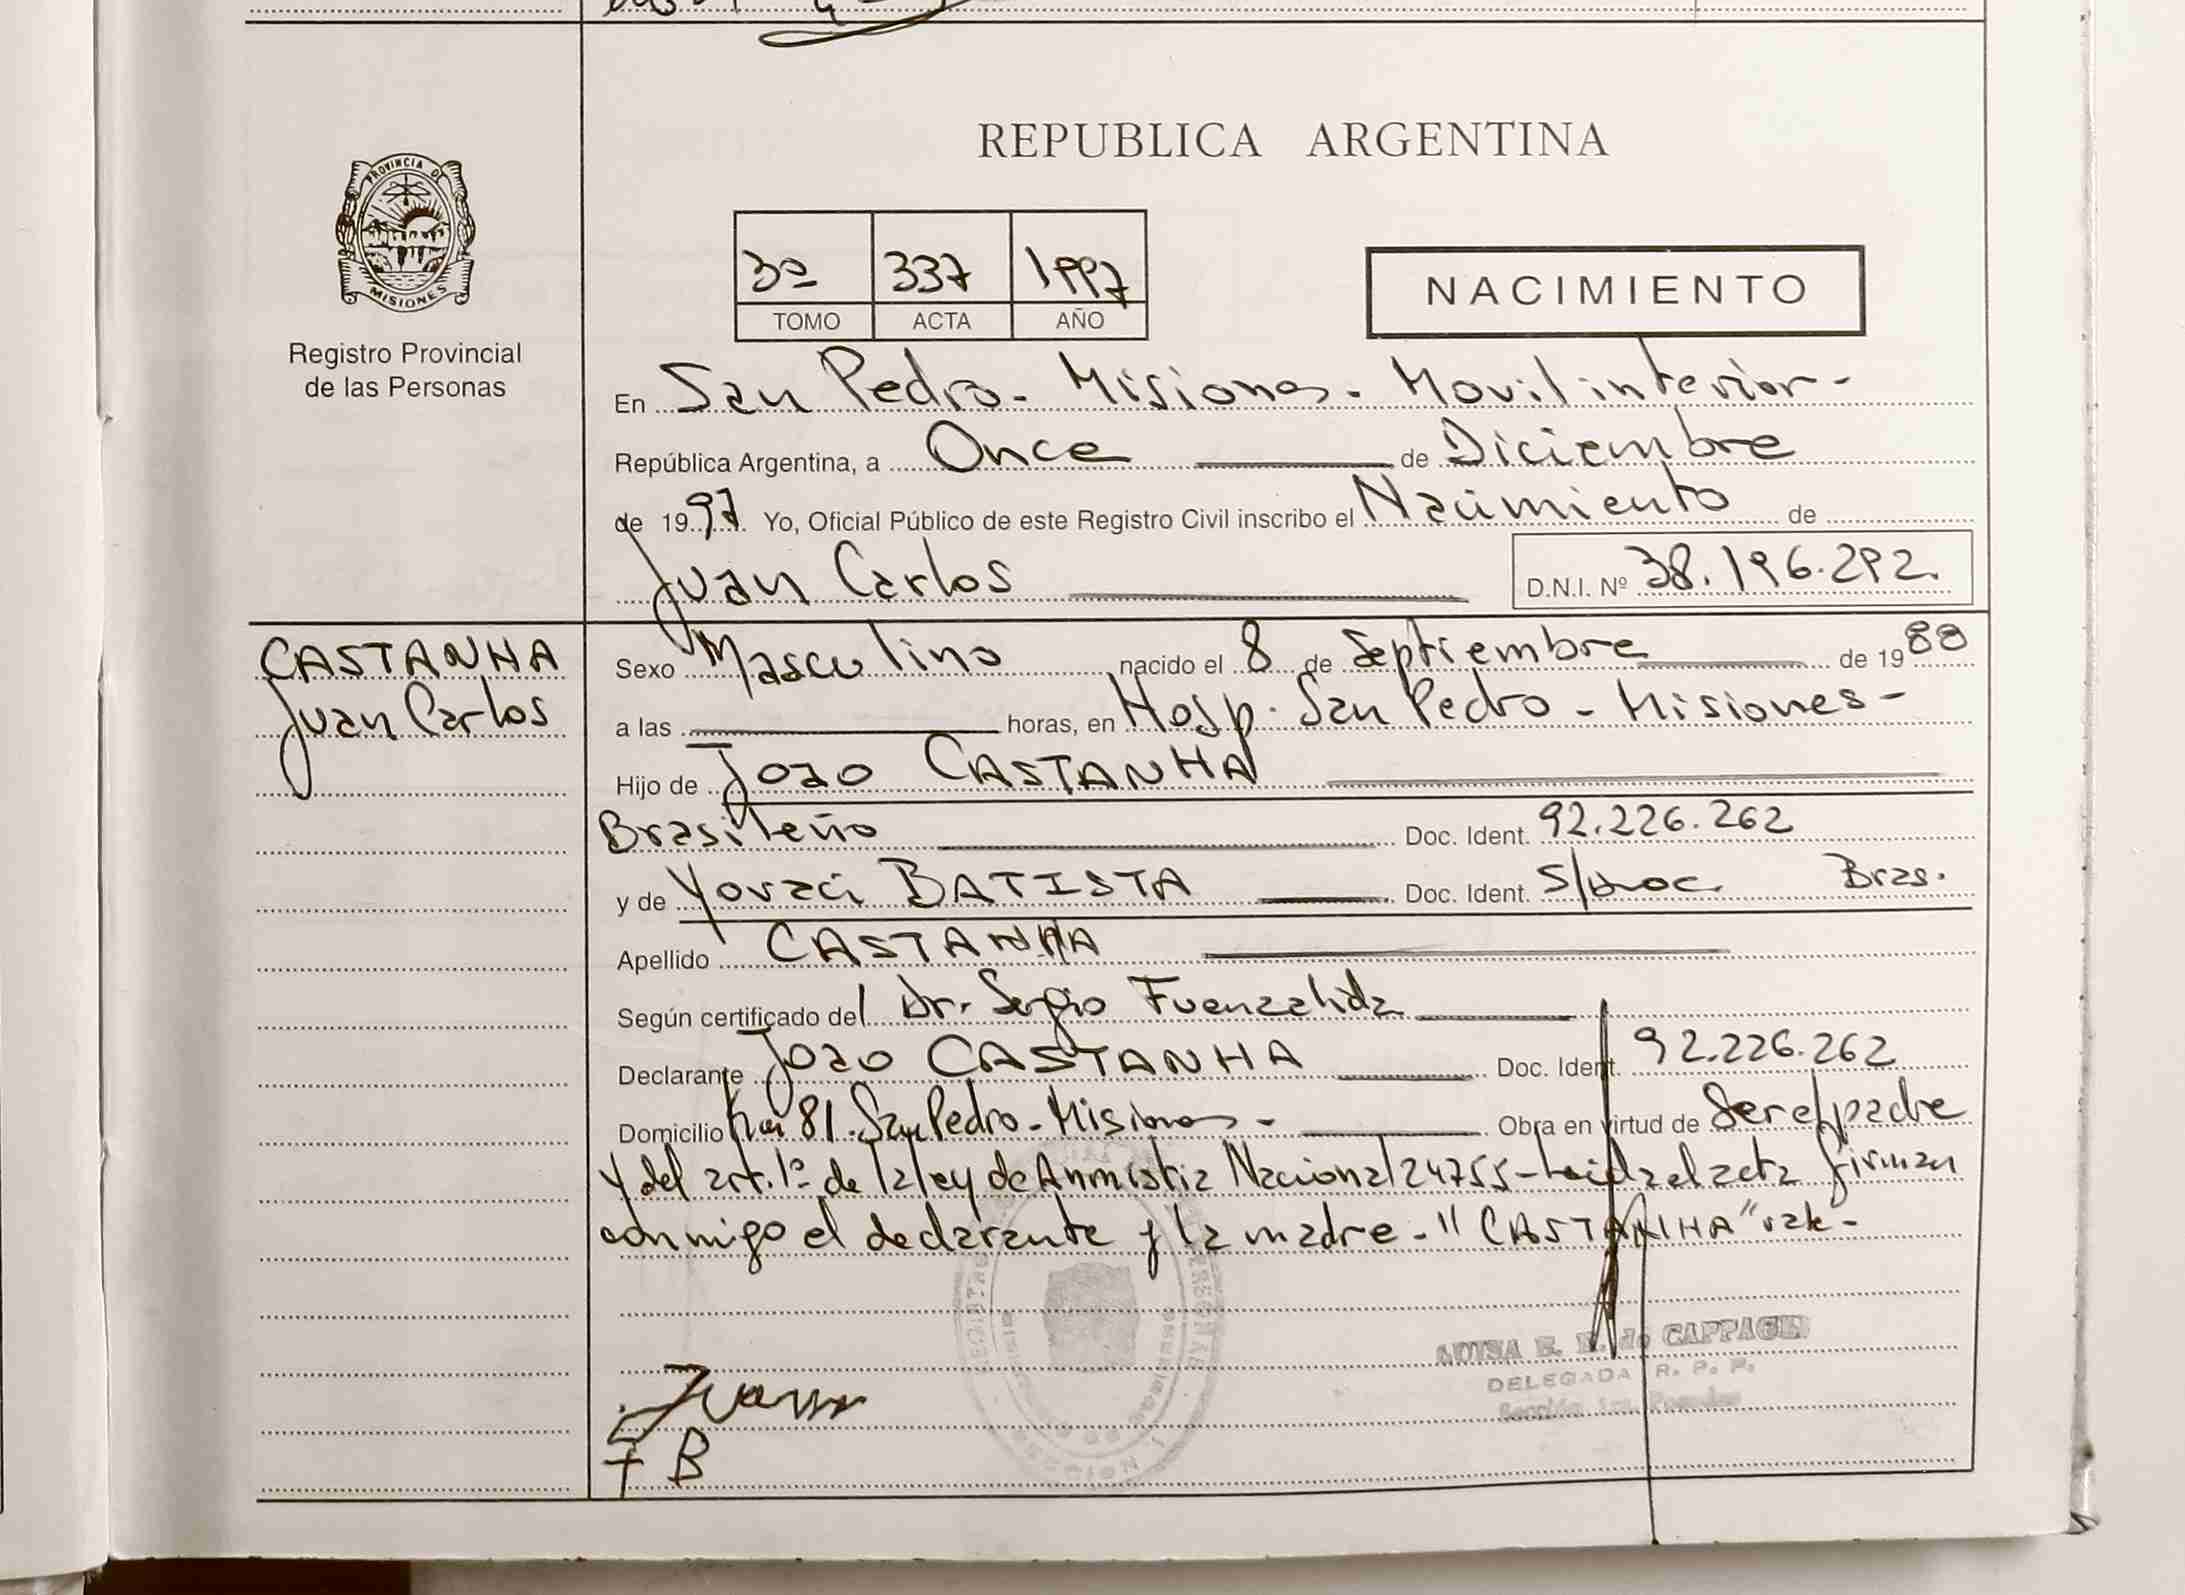 REPUBLICA ARGENTINA
PROVINCIA DE
MISIONES
Registro Provincial
de las Personas
3º 337 1997
TOMO ACTA AÑO
NACIMIENTO
En San Pedro - Misiones - Movil interior -
República Argentina, a Once de Diciembre
de 1997 Yo, Oficial Público de este Registro Civil inscribo el Nacimiento de
Juan Carlos D.N.I. Nº 38.196.292.
CASTANHA
Juan Carlos
Sexo Masculino nacido el 8 de Septiembre de 1988
a las horas, en Hosp. San Pedro - Misiones -
Hijo de Joao CASTANHA
Brasileño Doc. Ident. 92.226.262
y de Yoraci BATISTA Doc. Ident. S/doc. Bras.
Apellido CASTANHA
Según certificado del Dr. Sergio Fuenzalida
Declarante Joao CASTANHA Doc. Ident. 92.226.262
Domicilio Km 81. San Pedro - Misiones - Obra en virtud de Ser el padre
y del art. 1º de la ley de Anmistia Nacional 24755 - Leida el acta firman
conmigo el declarante y la madre - "CASTANHA" vale -
DELEGADA R. P. P.
B